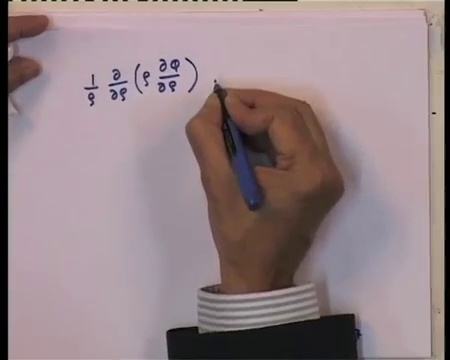 1/ρ ∂/∂ρ (ρ ∂Φ/∂ρ)